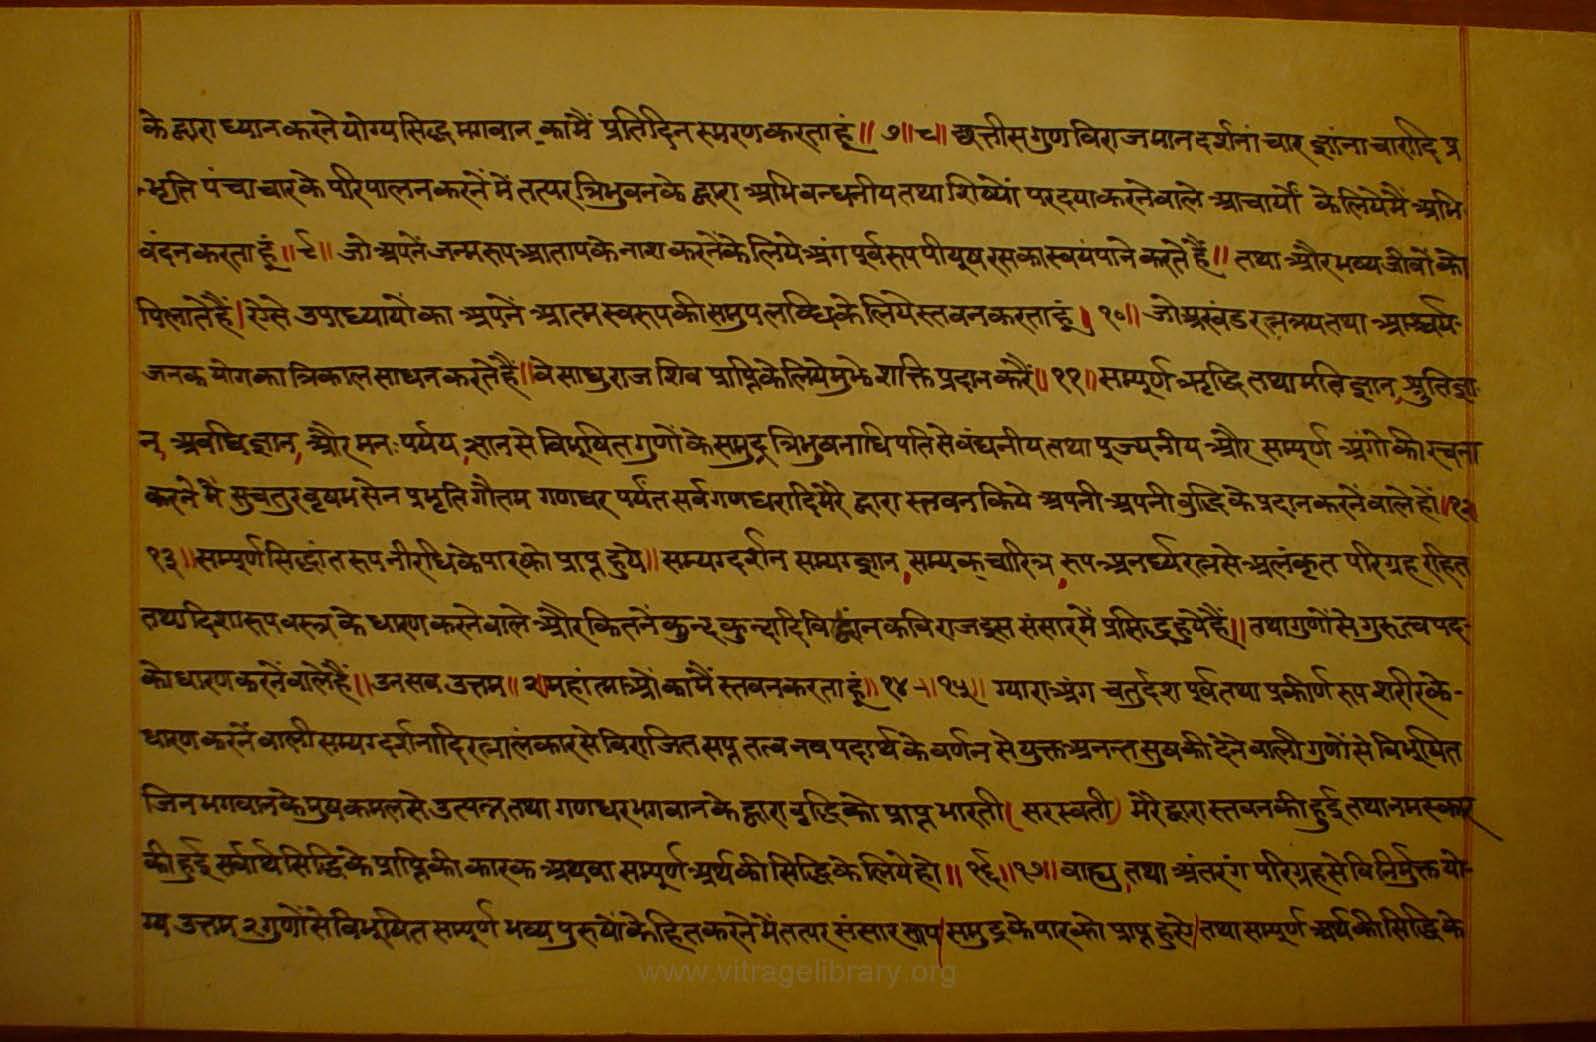 के द्वारा ध्यान करने योग्य सिद्ध भगवान् का मैं प्रतिदिन स्मरण करता हूं॥ ७॥ ८॥ छत्तीस गुण विराजमान दर्शनां चार ज्ञांना चारादि प्र
भृति पंचाचार के परिपालन करनें में तत्पर त्रिभुवन के द्वारा अभिवन्धनीय तथा शिष्यों पर दया करने वाले आचार्यों के लिये मैं अभि
वंदन करता हूं॥ ९॥ जो अपनें जन्म रूप आताप के नाश करनें के लिये अंग पूर्व रूप पीयूष रस का स्वयं पान करते हैं॥ तथा और भव्य जीवों को
पिलाते हैं। ऐसे उपाध्यायों का अपनें आत्म स्वरूप की समुपलब्धि के लिये स्तवन करता हूं। १०॥ जो अखंड रत्नत्रय तथा आश्चर्य
जनक योग का त्रिकाल साधन करते हैं॥ वे साधुराज शिव प्राप्ति के लिये मुझे शक्ति प्रदान करैं॥ ११॥ सम्पूर्ण ॠद्धि तथा मति ज्ञान, श्रुति ज्ञा
न, अवधि ज्ञान, और मनःपर्यय, ज्ञान से विभूषित गुणों के समुद्र त्रिभुवनाधिपति से वंद्यनीय तथा पूज्यनीय और सम्पूर्ण अंगो की रचना
करने में सुचतुर वृषभसेन प्रभृति गौतम गणधर पर्यंत सर्व गणधरादि मेरै द्वारा स्तवन किये अपनी अपनी बुद्धि के प्रदान करनें वाले हों॥ १२
१३॥ सम्पूर्ण सिद्धांत रूप नीरधि के पार को प्राप्त हुये॥ सम्यग्दर्शन सम्यग्ज्ञान, सम्यक् चारित्र रूप अनर्घ्य रत्न से अलंकृत परिग्रह रहित
तथा दिशा रूप वस्त्र के धारण करने वाले और कितनें कुन्द कुन्दादि विद्वान कविराज इस संसार में प्रसिद्ध हुये हैं॥ तथा गुणों से गुरुत्व पद
को धारण करनें वाले हैं॥ उन सब उत्तम॥ २ महांत्माओं का मैं स्तवन करता हूं॥ १४॥ १५॥ ग्यारा अंग चतुर्दश पूर्व तथा प्रकीर्ण रूप शरीर के
धारण करनें वाली सम्यग्दर्शनादि रत्नालंकार से विराजित सप्त तत्व नव पदार्थ के वर्णन से युक्त अनन्त सुष की देने वाली गुणों से विभूषित
जिन भगवान के मुष कमल से उत्पन्न तथा गणधर भगवान के द्वारा वृद्धि को प्राप्त भारती (सरस्वती) मेरै द्वारा स्तवन की हुई तथा नमस्कार
की हुई सर्वार्थ सिद्धि के प्राप्ति की कारक अथवा सम्पूर्ण अर्थ की सिद्धि के लिये हो॥ १६॥ १७॥ वाह्य, तथा अंतरंग परिग्रह से विनिर्मुक्त यो
ग्य उत्तम २ गुणों से विभूषित सम्पूर्ण भव्य पुरुषों के हित करने में तत्पर संसार समुद्र के पार को प्राप्त हुये। तथा सम्पूर्ण अर्थ की सिद्धि के
www.vitragelibrary.org